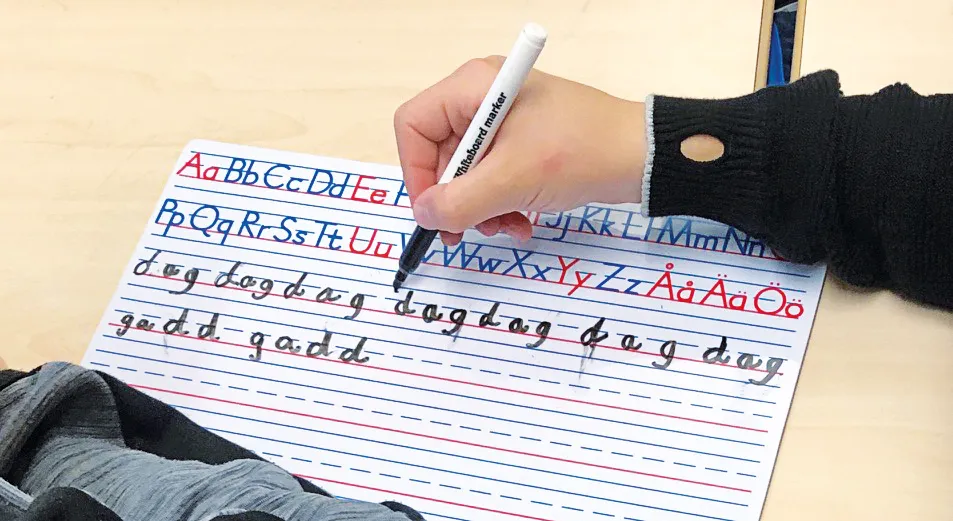 Whiteboard marker
Aa Bb Cc Dd Ee Jj Kk Ll Mm Nn
Pp Qq Rr Ss Tt Uu Vv Ww Xx Yy Zz Åå Ää Öö
dag dag dag dag dag dag dag
gadd gadd